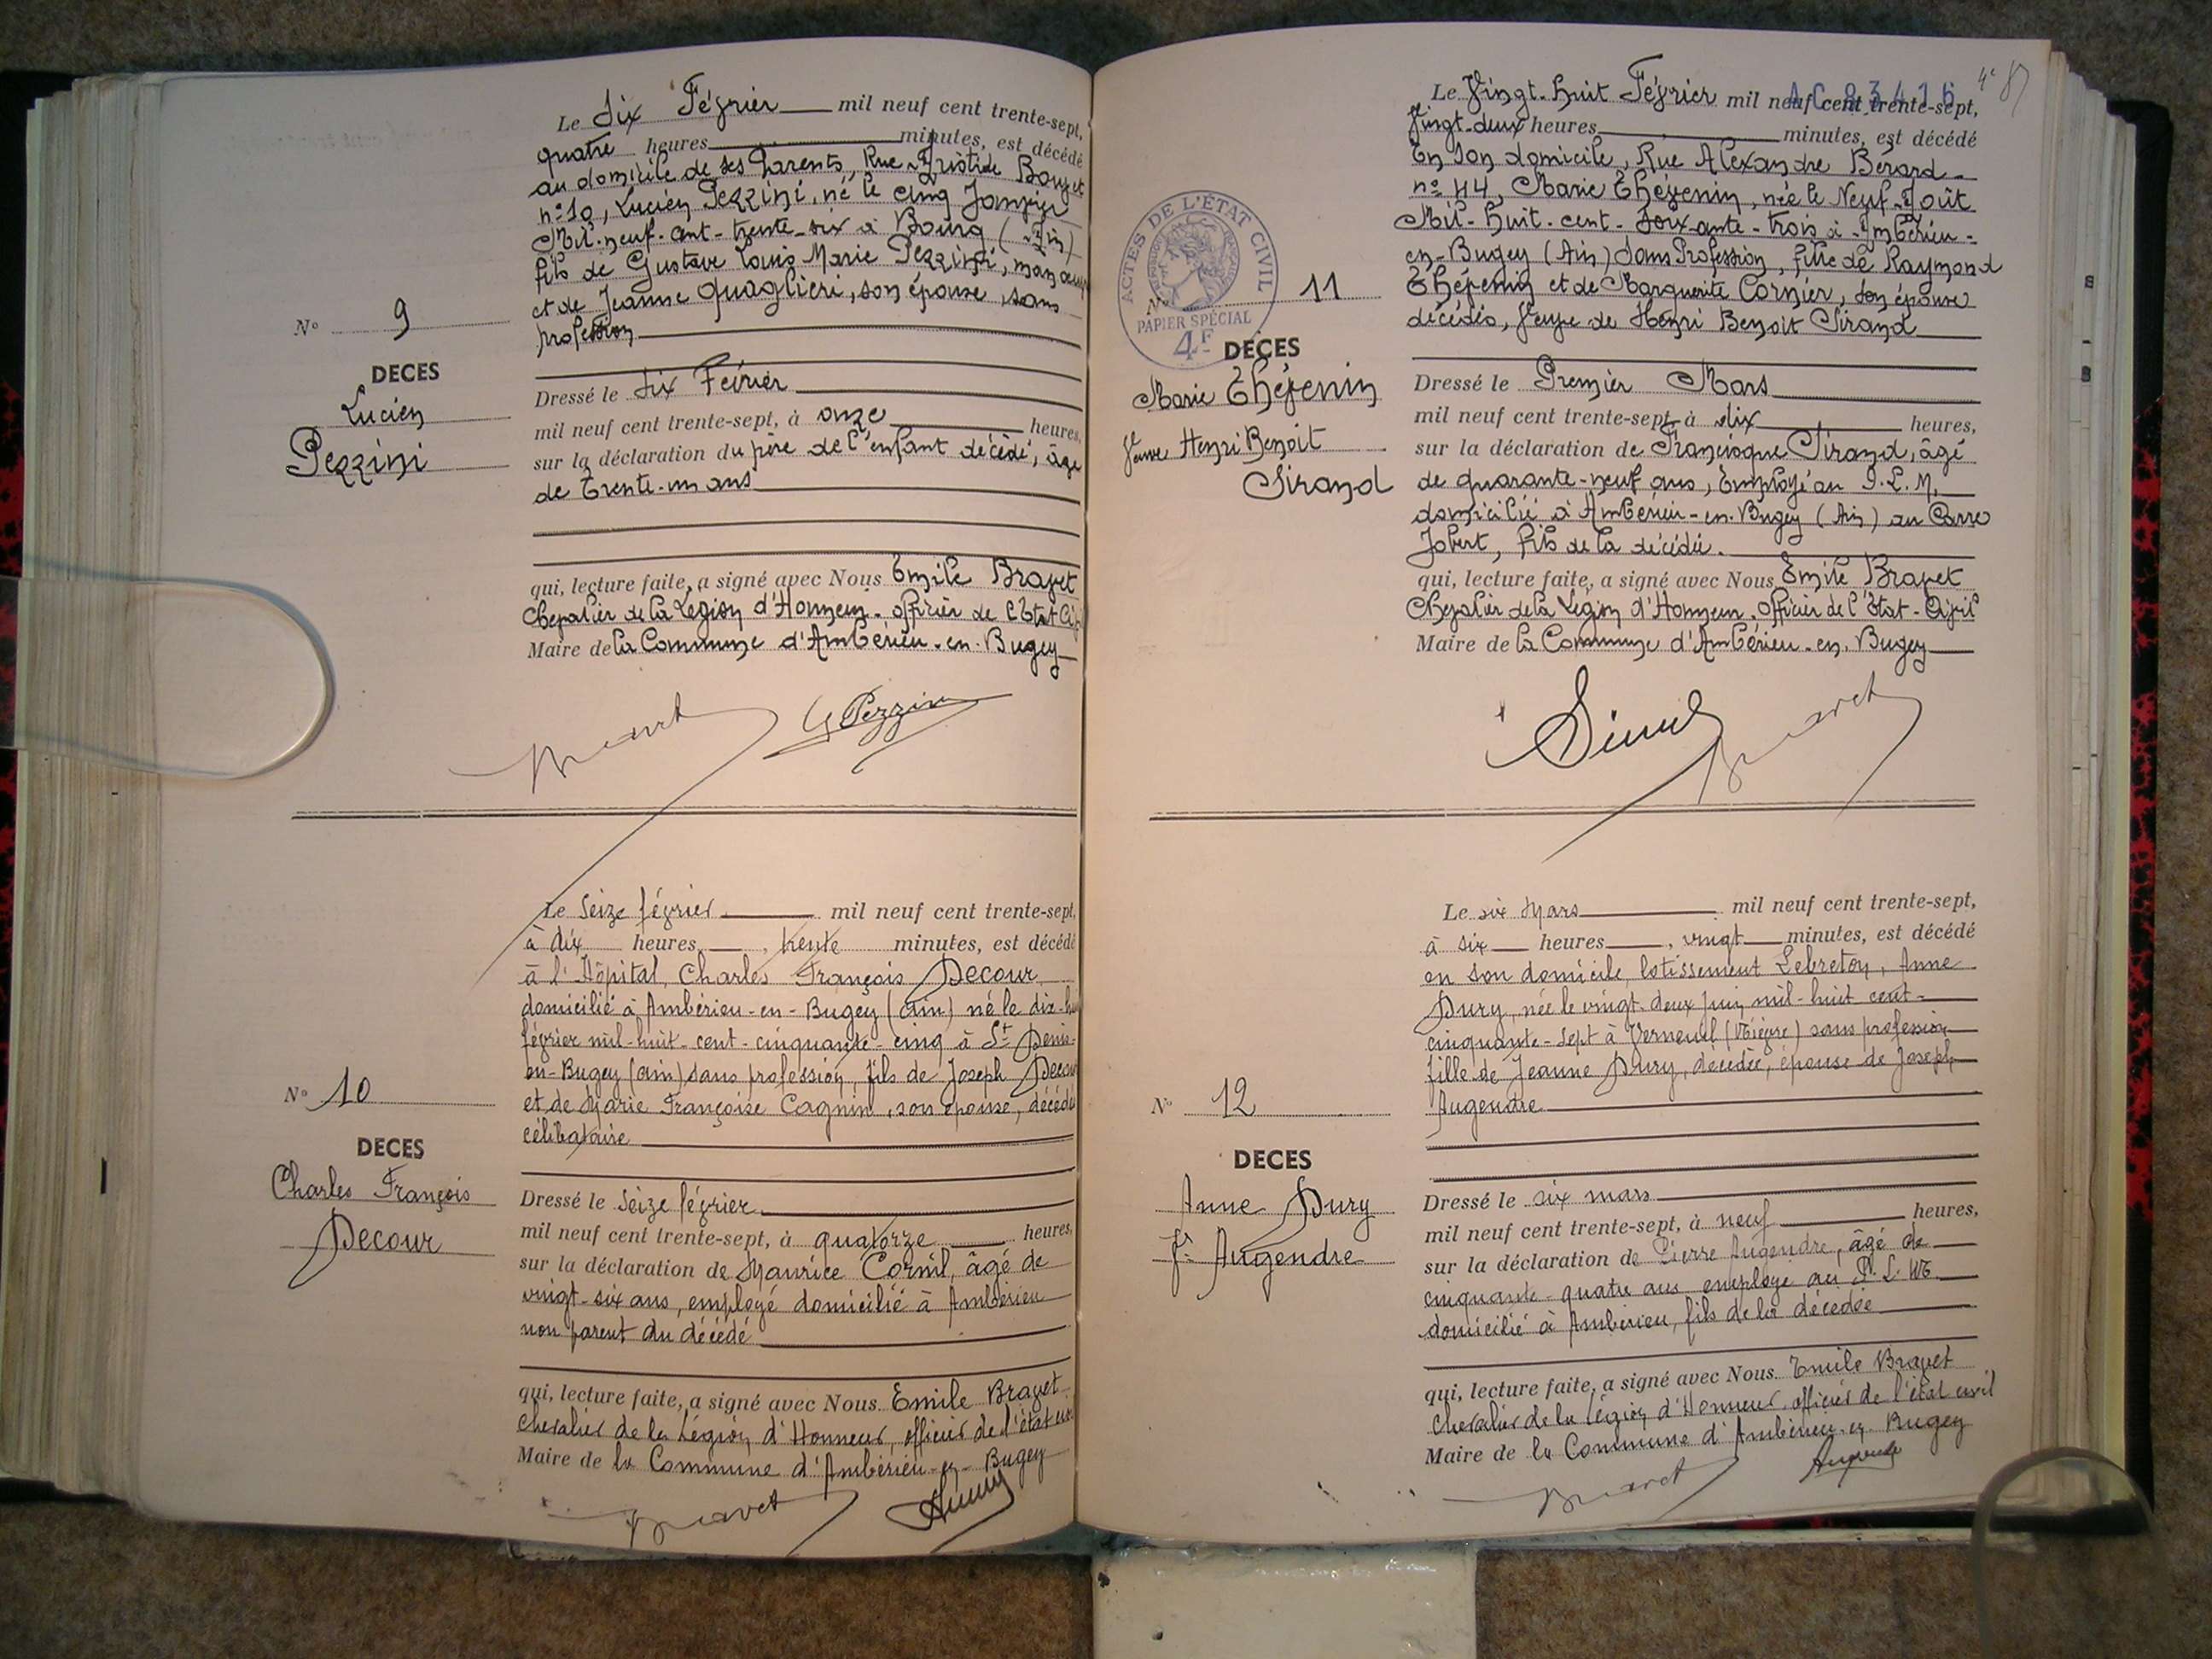 Le Six Février mil neuf cent trente-sept,
quatre heures minutes, est décédé
au domicile de ses Parents, Rue Aristide
n° 10, Lucien Pezzini, né le cinq Janvier
Mil-neuf-cent-trente-six à Bourg (Ain)
fils de Gustave Louis Marie Pezzini,
et de Jeanne Quaglieri, son épouse, sans
profession
N° 9
DECES
Lucien
Pezzini
Dressé le Six Février
mil neuf cent trente-sept, à onze heures,
sur la déclaration du père de l'enfant décédé, âgé
de Trente-un ans
qui, lecture faite, a signé avec Nous Emile Bravet
Chevalier de la Légion d'Honneur, officier de l'Etat Ci
Maire de la Commune d'Ambérieu-en-Bugey
Bravet G Pezzini
Le Seize février mil neuf cent trente-sept,
à dix heures, trente minutes, est décédé
à l'Hôpital, Charles François Decour
domicilié à Ambérieu-en-Bugey (ain) né le dix-hu
février mil-huit-cent-cinquante-cinq à St Denis-
en-Bugey (ain) sans profession, fils de Joseph Decour
et de Marie Françoise Cagnin, son épouse, décédé
célibataire
N° 10
DECES
Charles François
Decour
Dressé le Seize février
mil neuf cent trente-sept, à quatorze heures,
sur la déclaration de Maurice Cornil, âgé de
vingt-six ans, employé domicilié à Ambérieu
non parent du décédé
qui, lecture faite, a signé avec Nous Emile Bravet
chevalier de la Légion d'Honneur, officier de l'état civ
Maire de la Commune d'Ambérieu-en-Bugey
Bravet
4e 87
AC 83416
Le Vingt-Huit Février mil neuf cent trente-sept,
Vingt-deux heures minutes, est décédé
En son domicile, Rue Alexandre Bérard
n° 44, Marie Thévenin, née le Neuf-Août
Mil-Huit-cent-Soixante-Trois à Ambérieu-
en-Bugey (Ain) Sans Profession, fille de Raymond
Thévenin et de Marguerite Cornier, son épouse
décédés, Veuve de Henri Benoit Sirand
ACTES DE L'ÉTAT CIVIL
PAPIER SPÉCIAL
4F
N° 11
DECES
Marie Thévenin
Veuve Henri Benoit
Sirand
Dressé le Premier Mars
mil neuf cent trente-sept, à dix heures,
sur la déclaration de Francisque Sirand, âgé
de quarante-neuf ans, Employé au P.L.M.
domicilié à Ambérieu-en-Bugey (Ain) au Carre
Jobert, fils de la décédée.
qui, lecture faite, a signé avec Nous Emile Bravet
Chevalier de la Légion d'Honneur, Officier de l'Etat-Civil
Maire de la Commune d'Ambérieu-en-Bugey
Sirand Bravet
Le six Mars mil neuf cent trente-sept,
à six heures, vingt minutes, est décédé
en son domicile, lotissement Lebreton, Anne
Dury, née le vingt-deux juin mil-huit cent-
cinquante-sept à Verneuil (Nièvre) sans profession
fille de Jeanne Dury, décédée, épouse de Joseph
Augendre
N° 12
DECES
Anne Dury
Fe Augendre
Dressé le six mars
mil neuf cent trente-sept, à neuf heures,
sur la déclaration de Pierre Augendre, âgé de
cinquante-quatre ans employé au P.L.M.
domicilié à Ambérieu, fils de la décédée
qui, lecture faite, a signé avec Nous Emile Bravet
Chevalier de la Légion d'Honneur, officier de l'état civil
Maire de la Commune d'Ambérieu-en-Bugey
Bravet Augendre